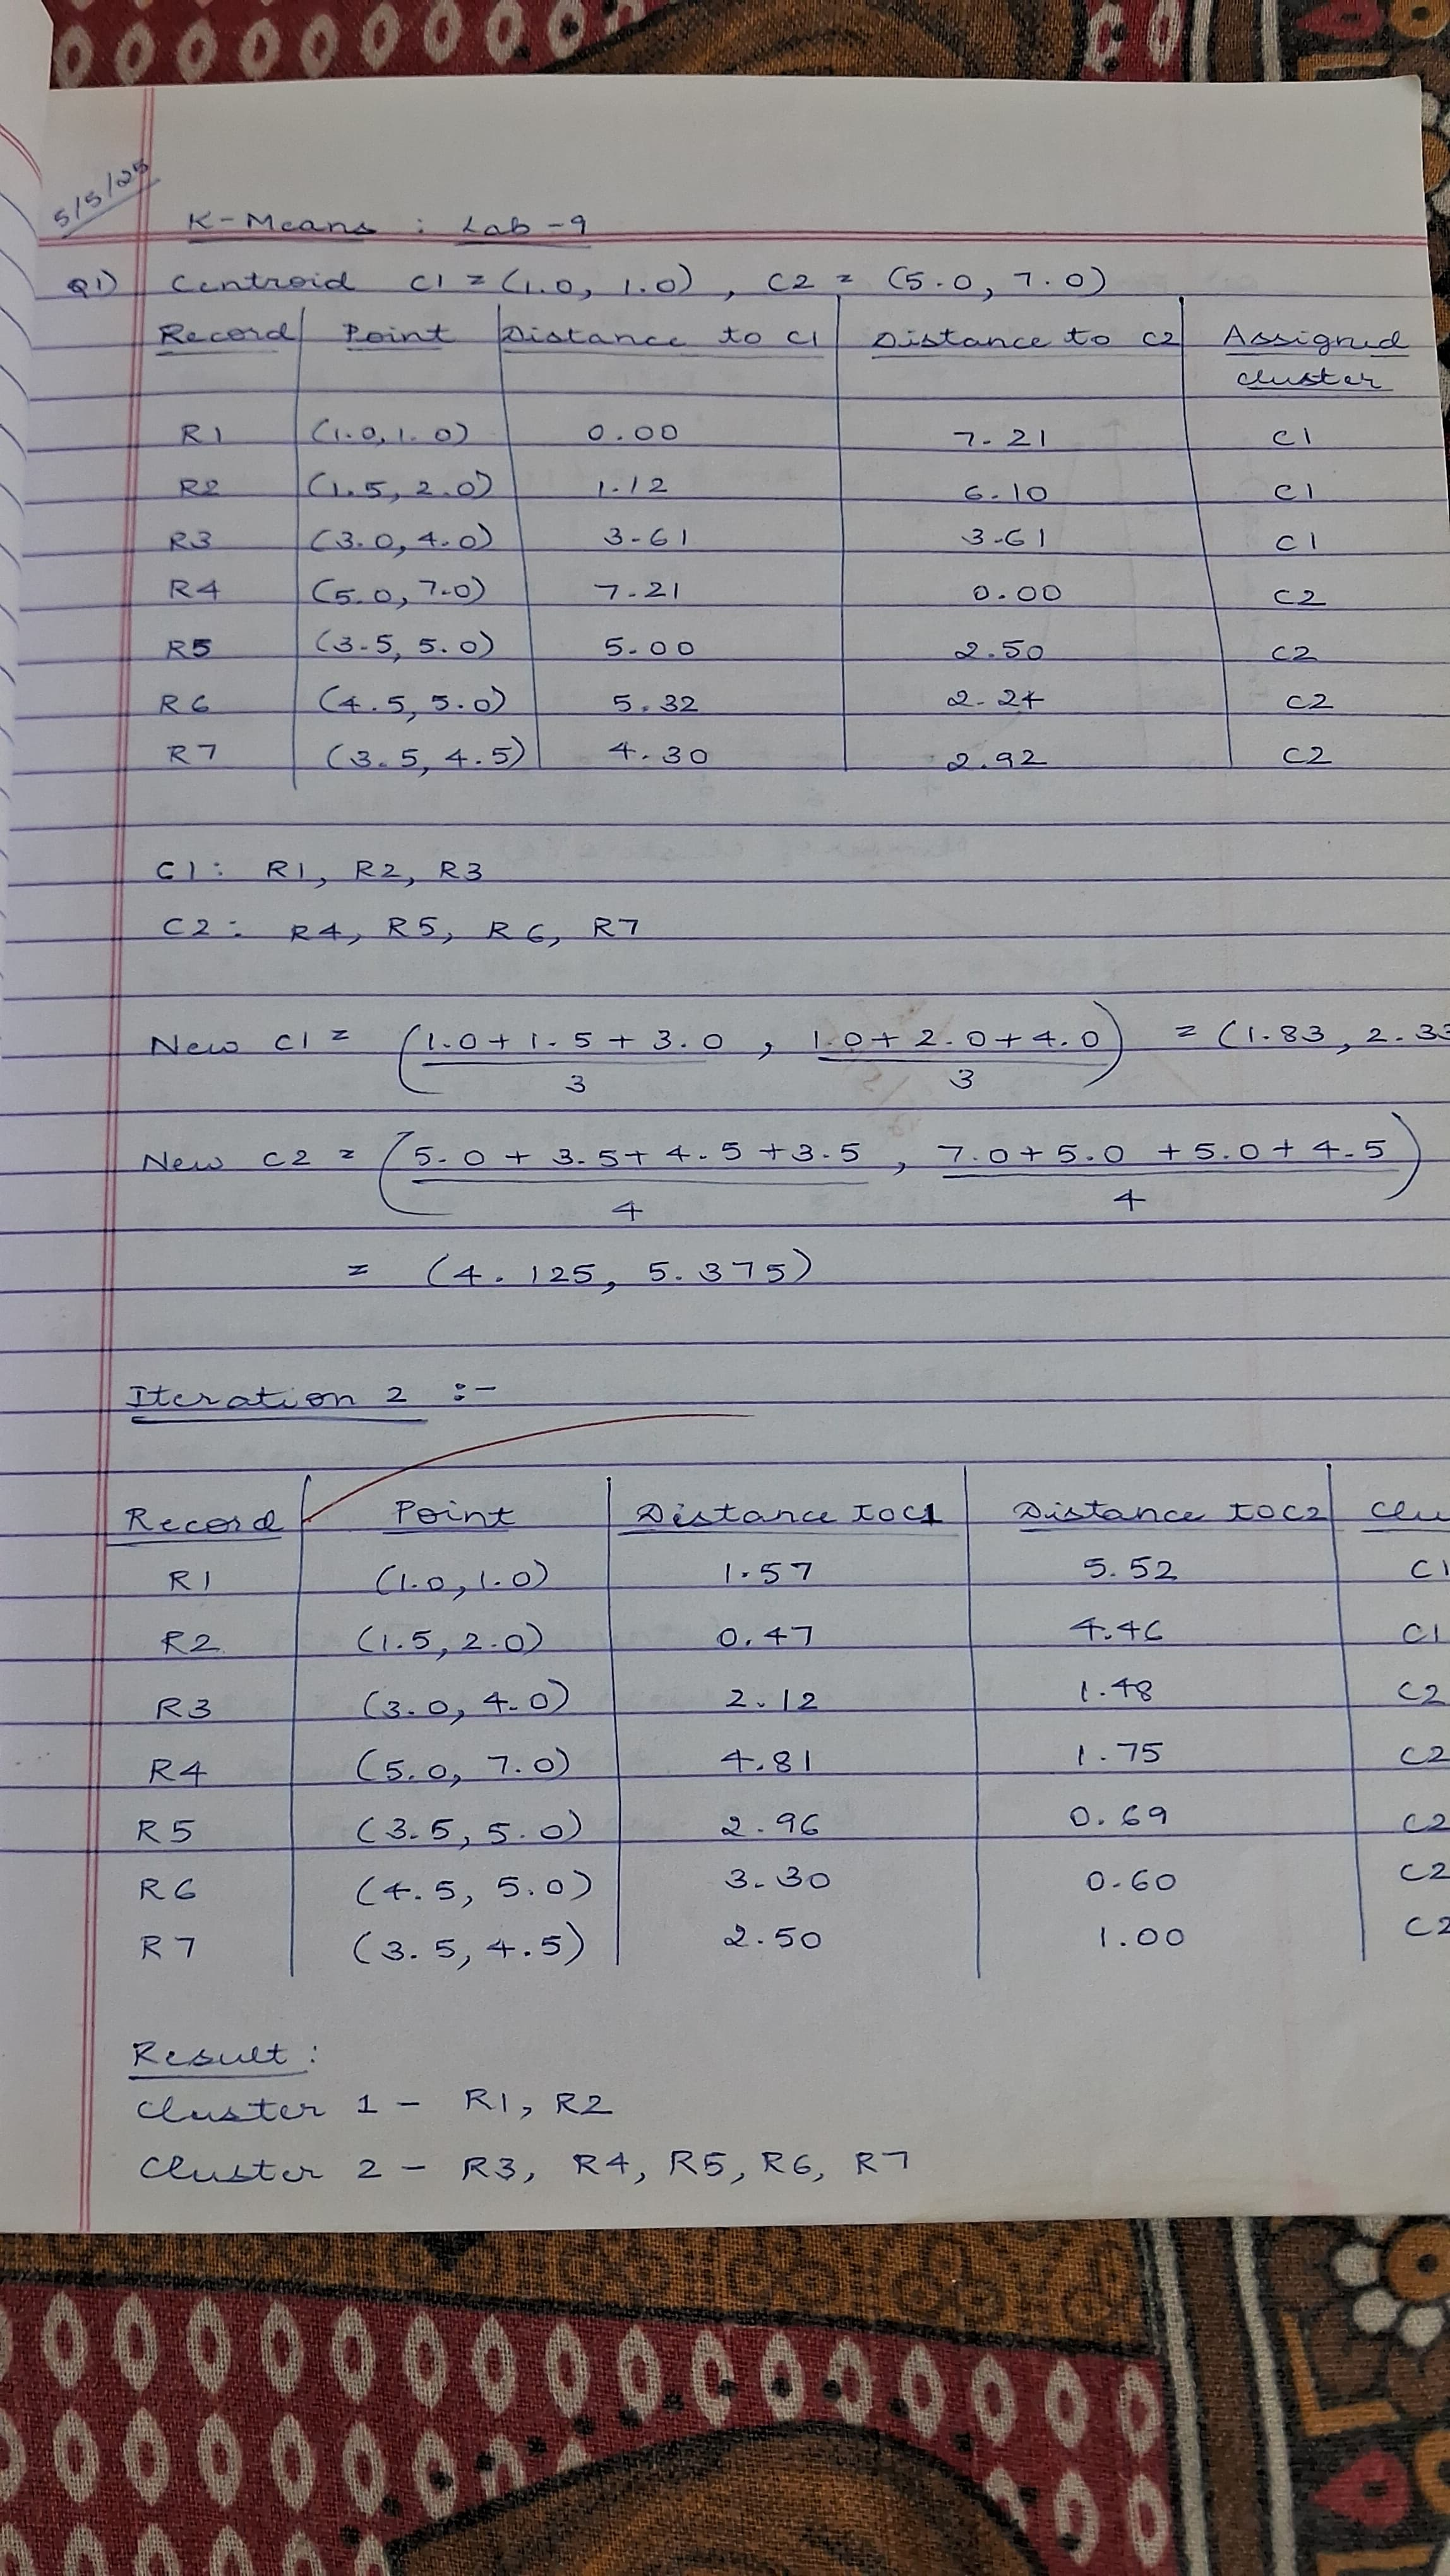 5/5/25
K-Means : Lab-9
Q1) Centroid C1 = (1.0, 1.0), C2 = (5.0, 7.0)
Record Point Distance to C1 Distance to C2 Assigned
cluster
R1 (1.0, 1.0) 0.00 7.21 C1
R2 (1.5, 2.0) 1.12 6.10 C1
R3 (3.0, 4.0) 3.61 3.61 C1
R4 (5.0, 7.0) 7.21 0.00 C2
R5 (3.5, 5.0) 5.00 2.50 C2
R6 (4.5, 5.0) 5.32 2.24 C2
R7 (3.5, 4.5) 4.30 2.92 C2
C1: R1, R2, R3
C2: R4, R5, R6, R7
New C1 = (1.0 + 1.5 + 3.0 , 1.0 + 2.0 + 4.0) = (1.83, 2.33
3 3
New C2 = (5.0 + 3.5 + 4.5 + 3.5 , 7.0 + 5.0 + 5.0 + 4.5)
4 4
= (4.125, 5.375)
Iteration 2 :-
Record Point Distance to C1 Distance to C2 Clu
R1 (1.0, 1.0) 1.57 5.52 C1
R2 (1.5, 2.0) 0.47 4.46 C1
R3 (3.0, 4.0) 2.12 1.48 C2
R4 (5.0, 7.0) 4.81 1.75 C2
R5 (3.5, 5.0) 2.96 0.69 C2
R6 (4.5, 5.0) 3.30 0.60 C2
R7 (3.5, 4.5) 2.50 1.00 C2
Result:
Cluster 1 - R1, R2
Cluster 2 - R3, R4, R5, R6, R7